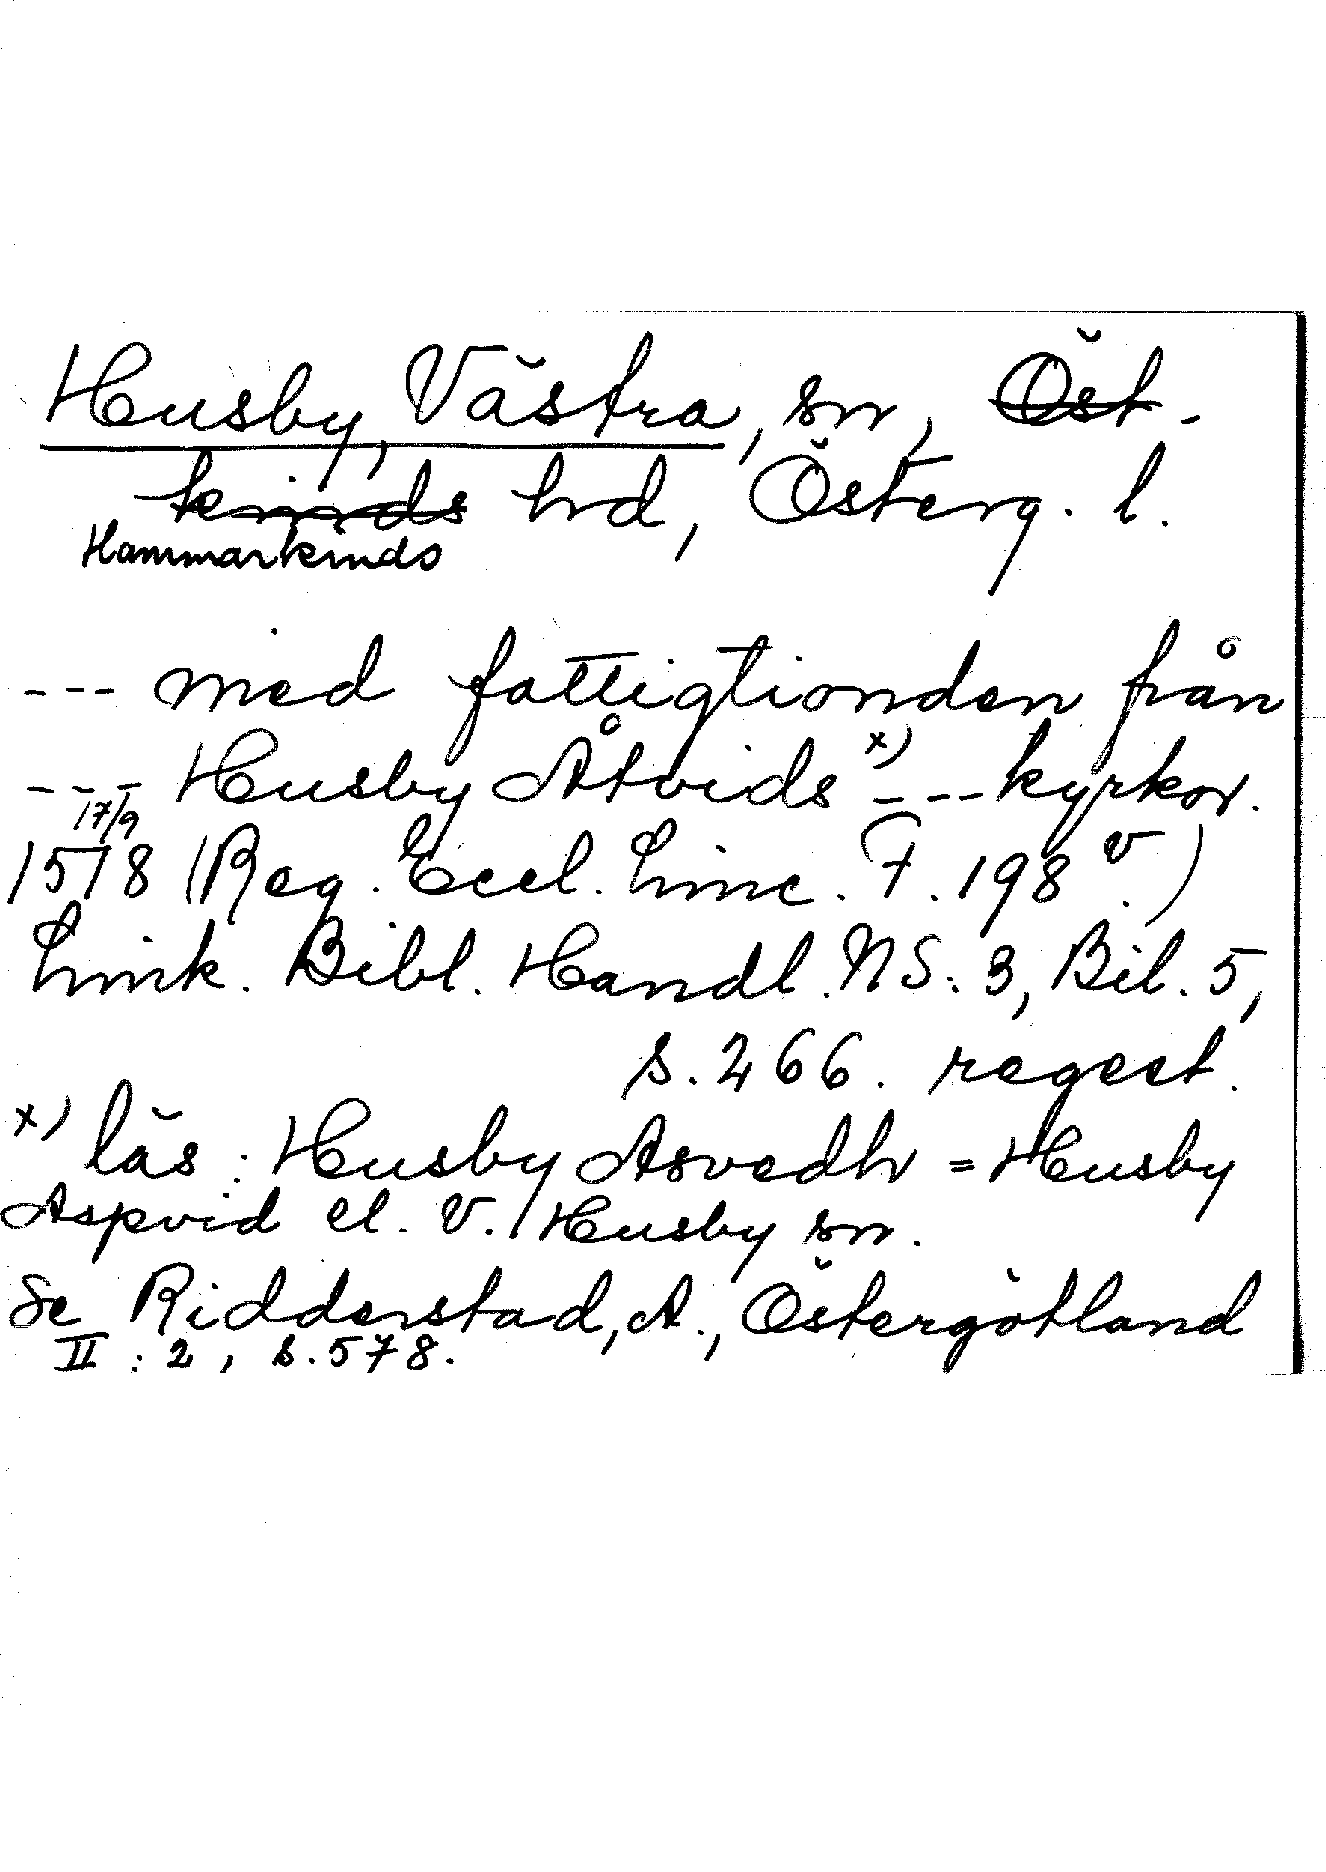 Husby, Västra, sn, Öst-
kinds hd, Österg. l.
Hammarkinds
--- med fattigtionden från
--- Husby Åtvids x) --- kyrkov.
17/9
1578 (Reg. Eccl. Linc. F. 198 v.)
Link. Bibl. Handl. NS. 3, Bil. 5,
s. 266. regest.
x) läs: Husby Asvedh = Husby
Aspvid el. V. Husby sn.
Se Ridderstad, A., Östergötland
II : 2, s. 578.